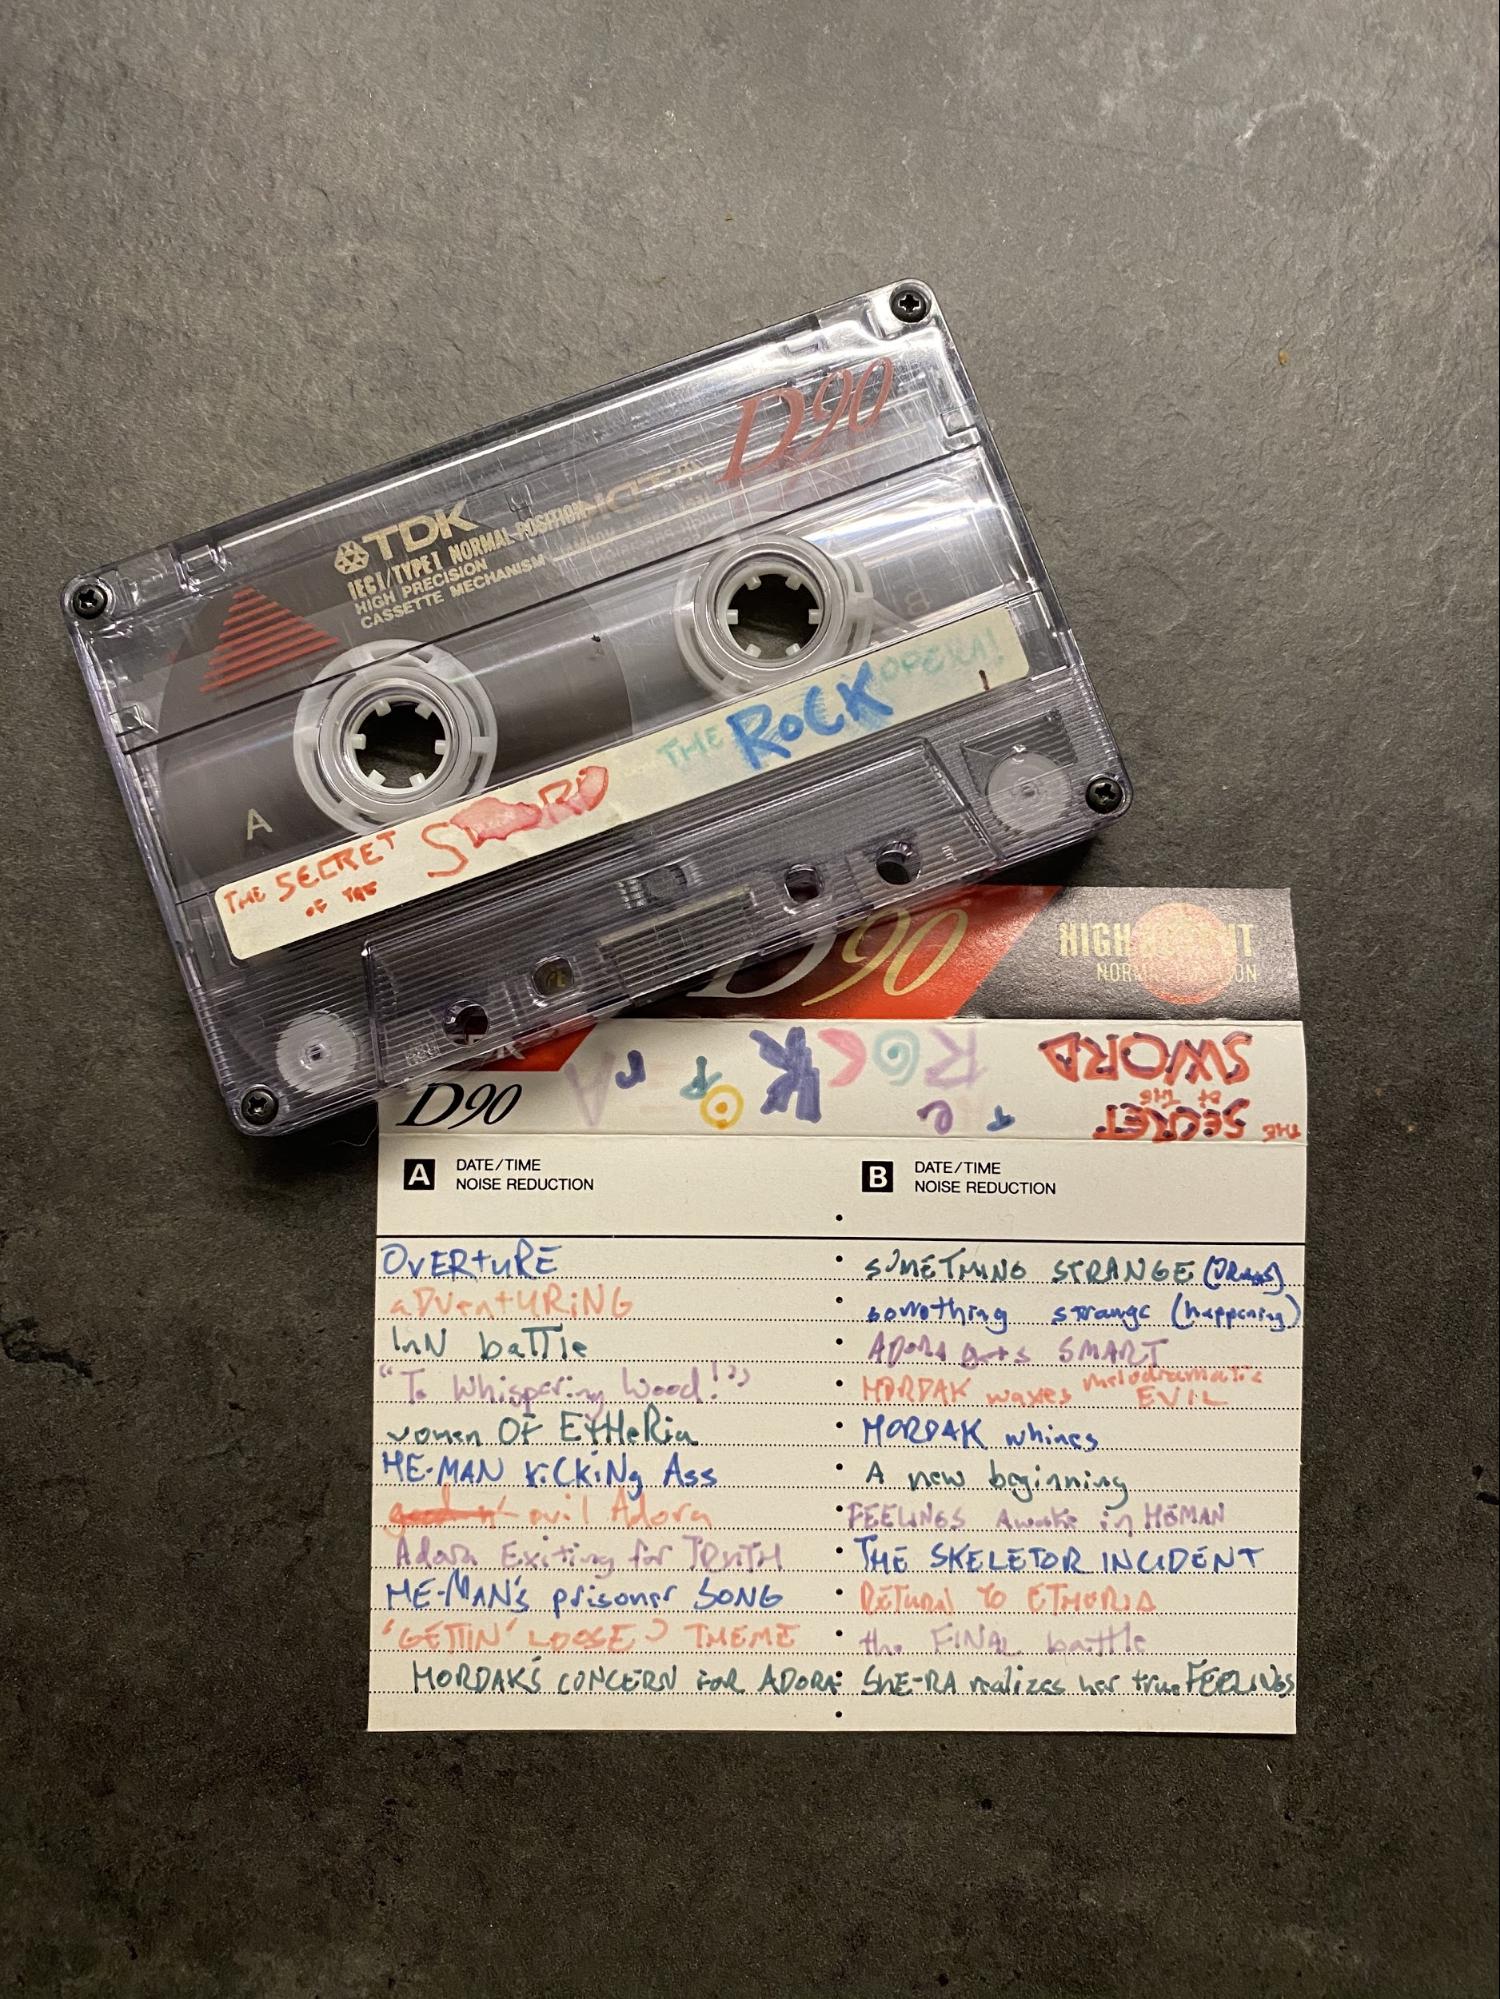 D90
TDK
IEC I/TYPE I NORMAL POSITION
HIGH PRECISION
CASSETTE MECHANISM
A
B
THE SECRET OF THE SWORD THE ROCK OPERA!
D90
HIGH OUTPUT
NORMAL POSITION
THE SECRET OF THE SWORD THE ROCK
D90
A DATE/TIME
NOISE REDUCTION
B DATE/TIME
NOISE REDUCTION
OVERtURE
aDVentURiNG
INN baTTle
"To Whispering Wood!"
women OF EtHeRia
HE-MAN KiCKiNg Ass
evil Adora
Adora Exiting for TRUTH
HE-MAN's prisoner SONG
'GETTIN' LOOSE' THEME
MORDAK'S CONCERN FOR ADORA
SOMETHING STRANGE
something strange (happening)
ADORA gets SMART
MORDAK waxes melodramatic EVIL
MORDAK whines
A new beginning
FEELINGS Awake in HEMAN
THE SKELETOR INCIDENT
RETURN TO ETHERIA
the FINAL battle
SHE-RA realizes her true FEELINGS